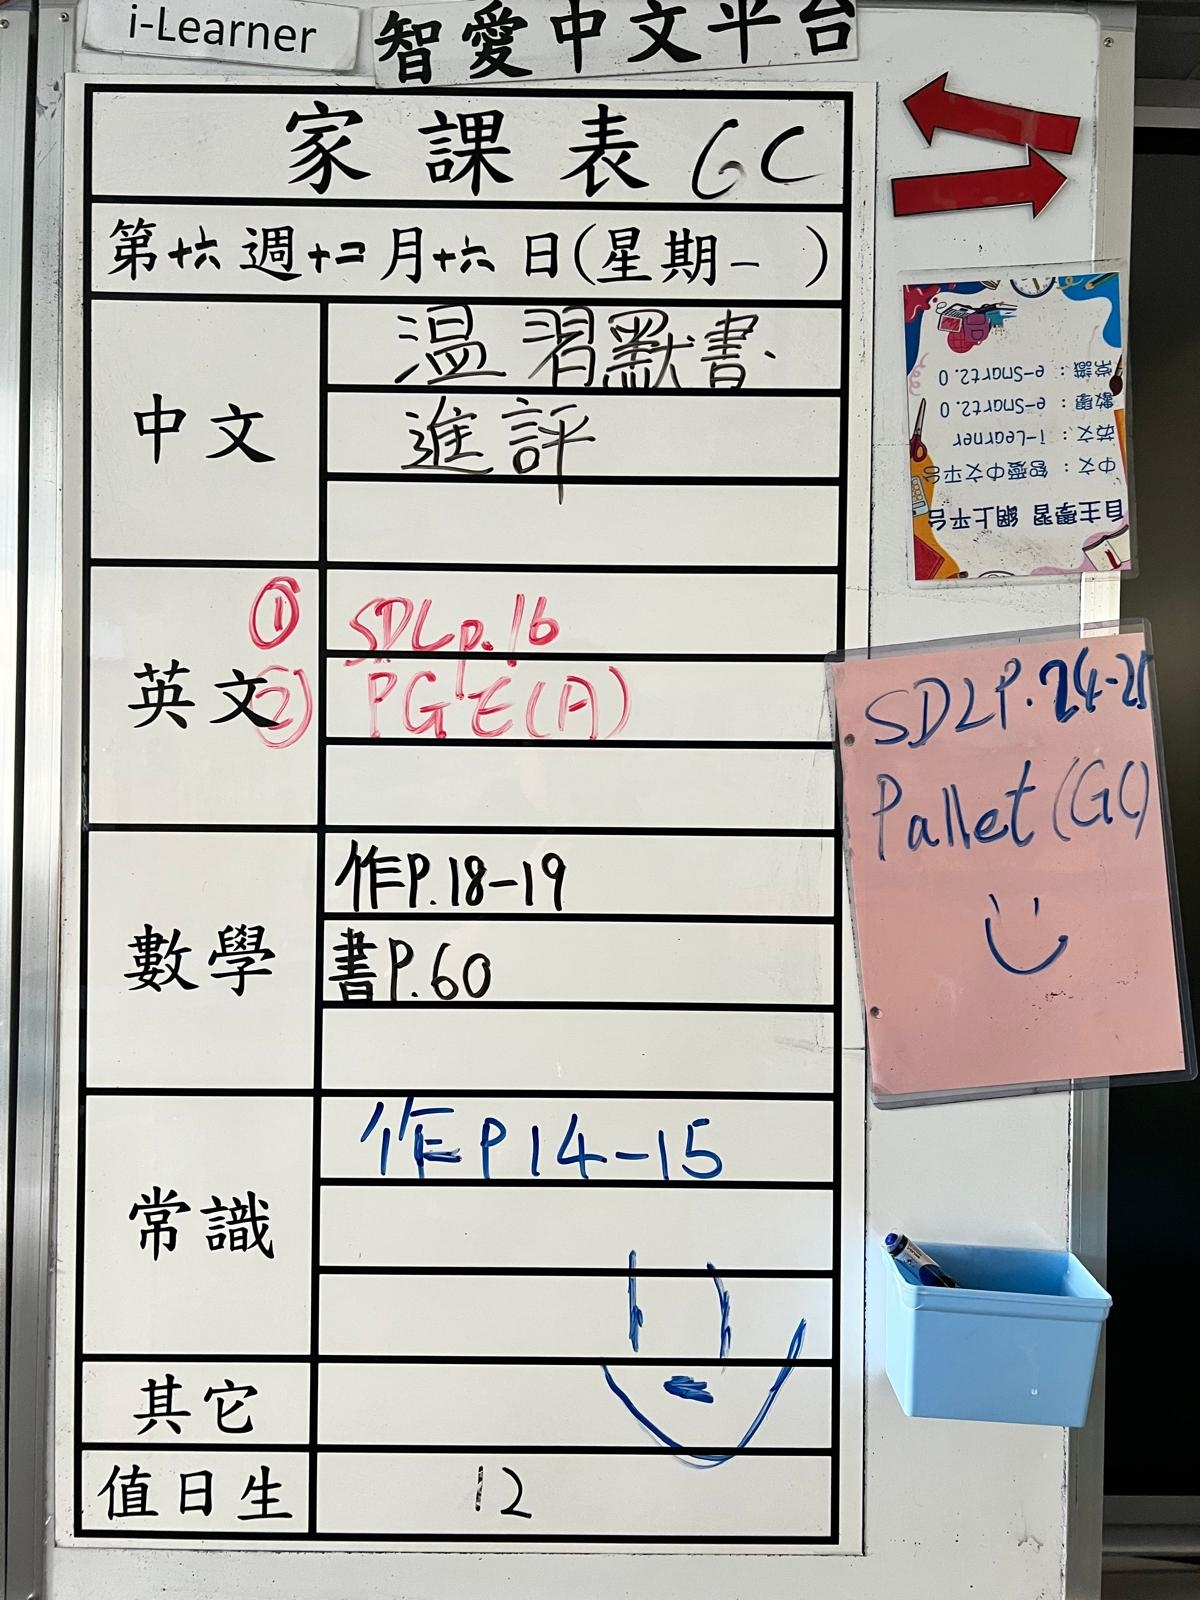 i-Learner
智愛中文平台
家課表 6C
第十六週十二月十六日(星期一)
中文
温習默書.
進評
英文
① SDL p.16
② PGE(A)
數學
作P.18-19
書P.60
常識
作P14-15
其它
值日生
12
自主學習 網上平台
中文：智愛中文平台
英文：i-Learner
數學：e-Smart2.0
常識：e-Smart2.0
SDLP.24-25
Pallet(GC)